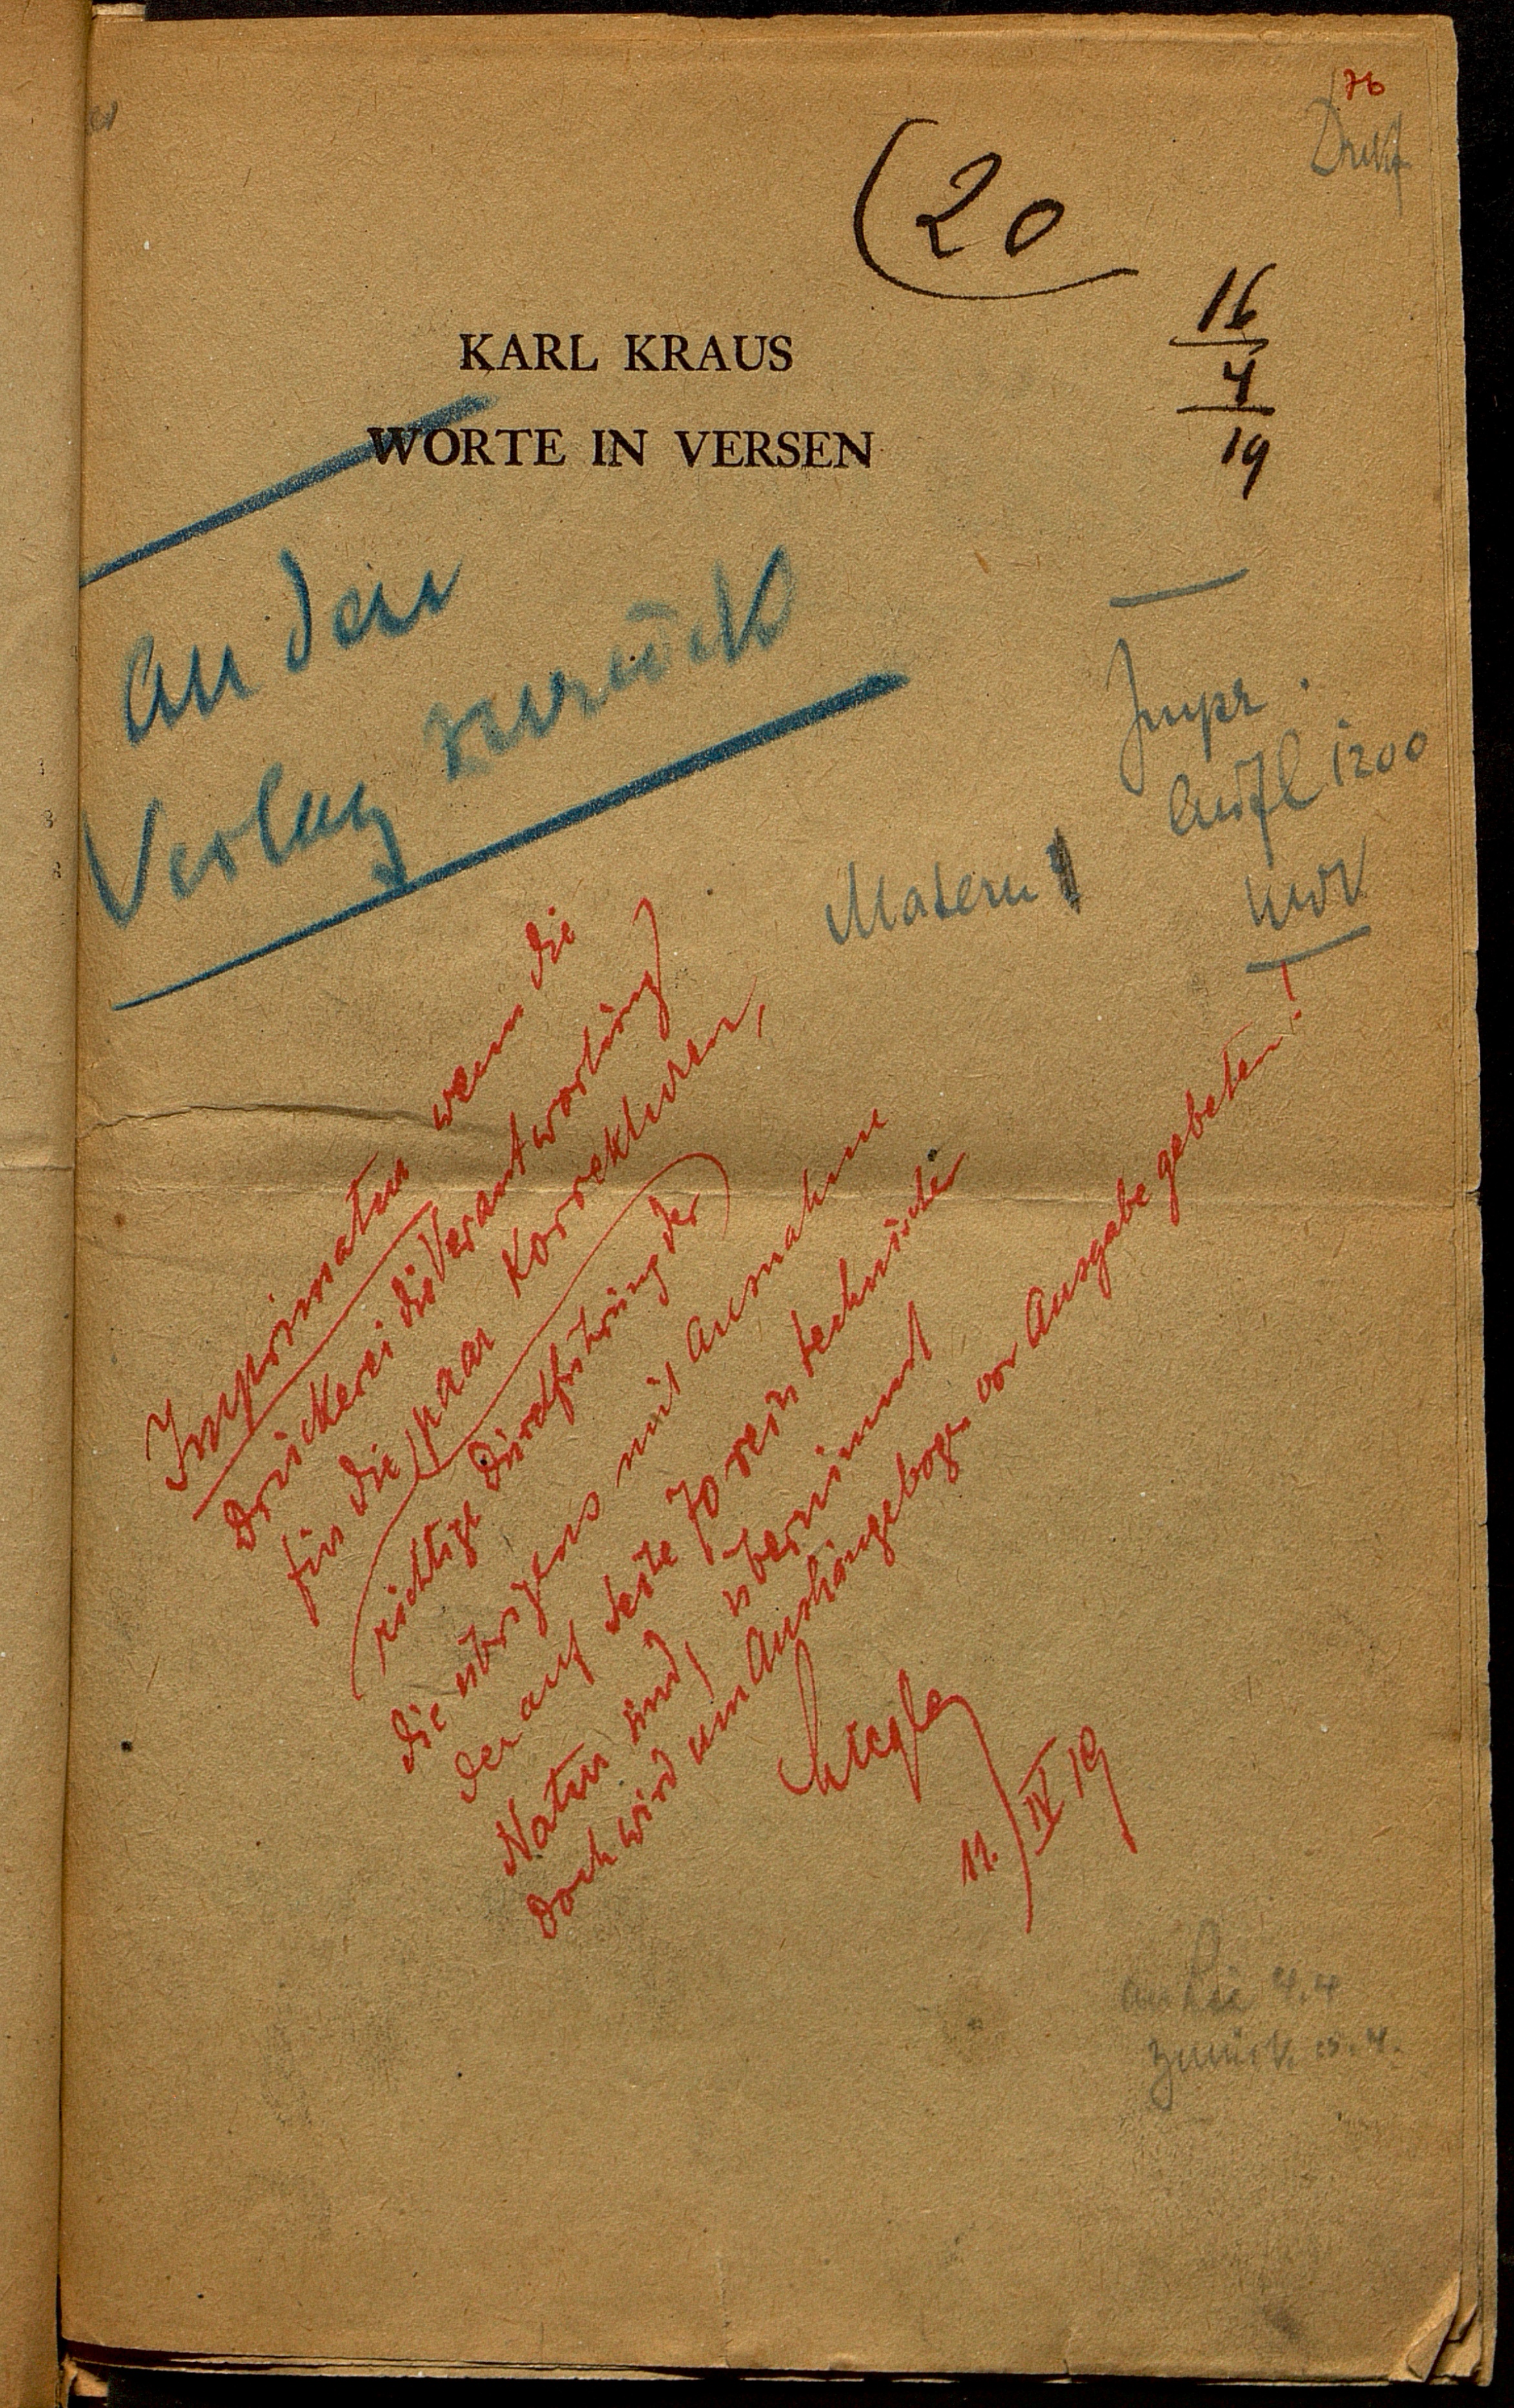 76
Druck
20
16
4
19
KARL KRAUS
WORTE IN VERSEN
An den
Verlag zurück
Impr.
Aufl 1200
Matern
Imprimatur wenn die
Druckerei die Verantwortung
für die paar Korrekturen,
richtige Durchführung der
die übrigens mit Ausnahme
der auf Seite 70 rein technischer
Natur sind, übernimmt
Doch wird um Aushängebogen vor Ausgabe gebeten!
11. IV 19
4.4
zurück 4.